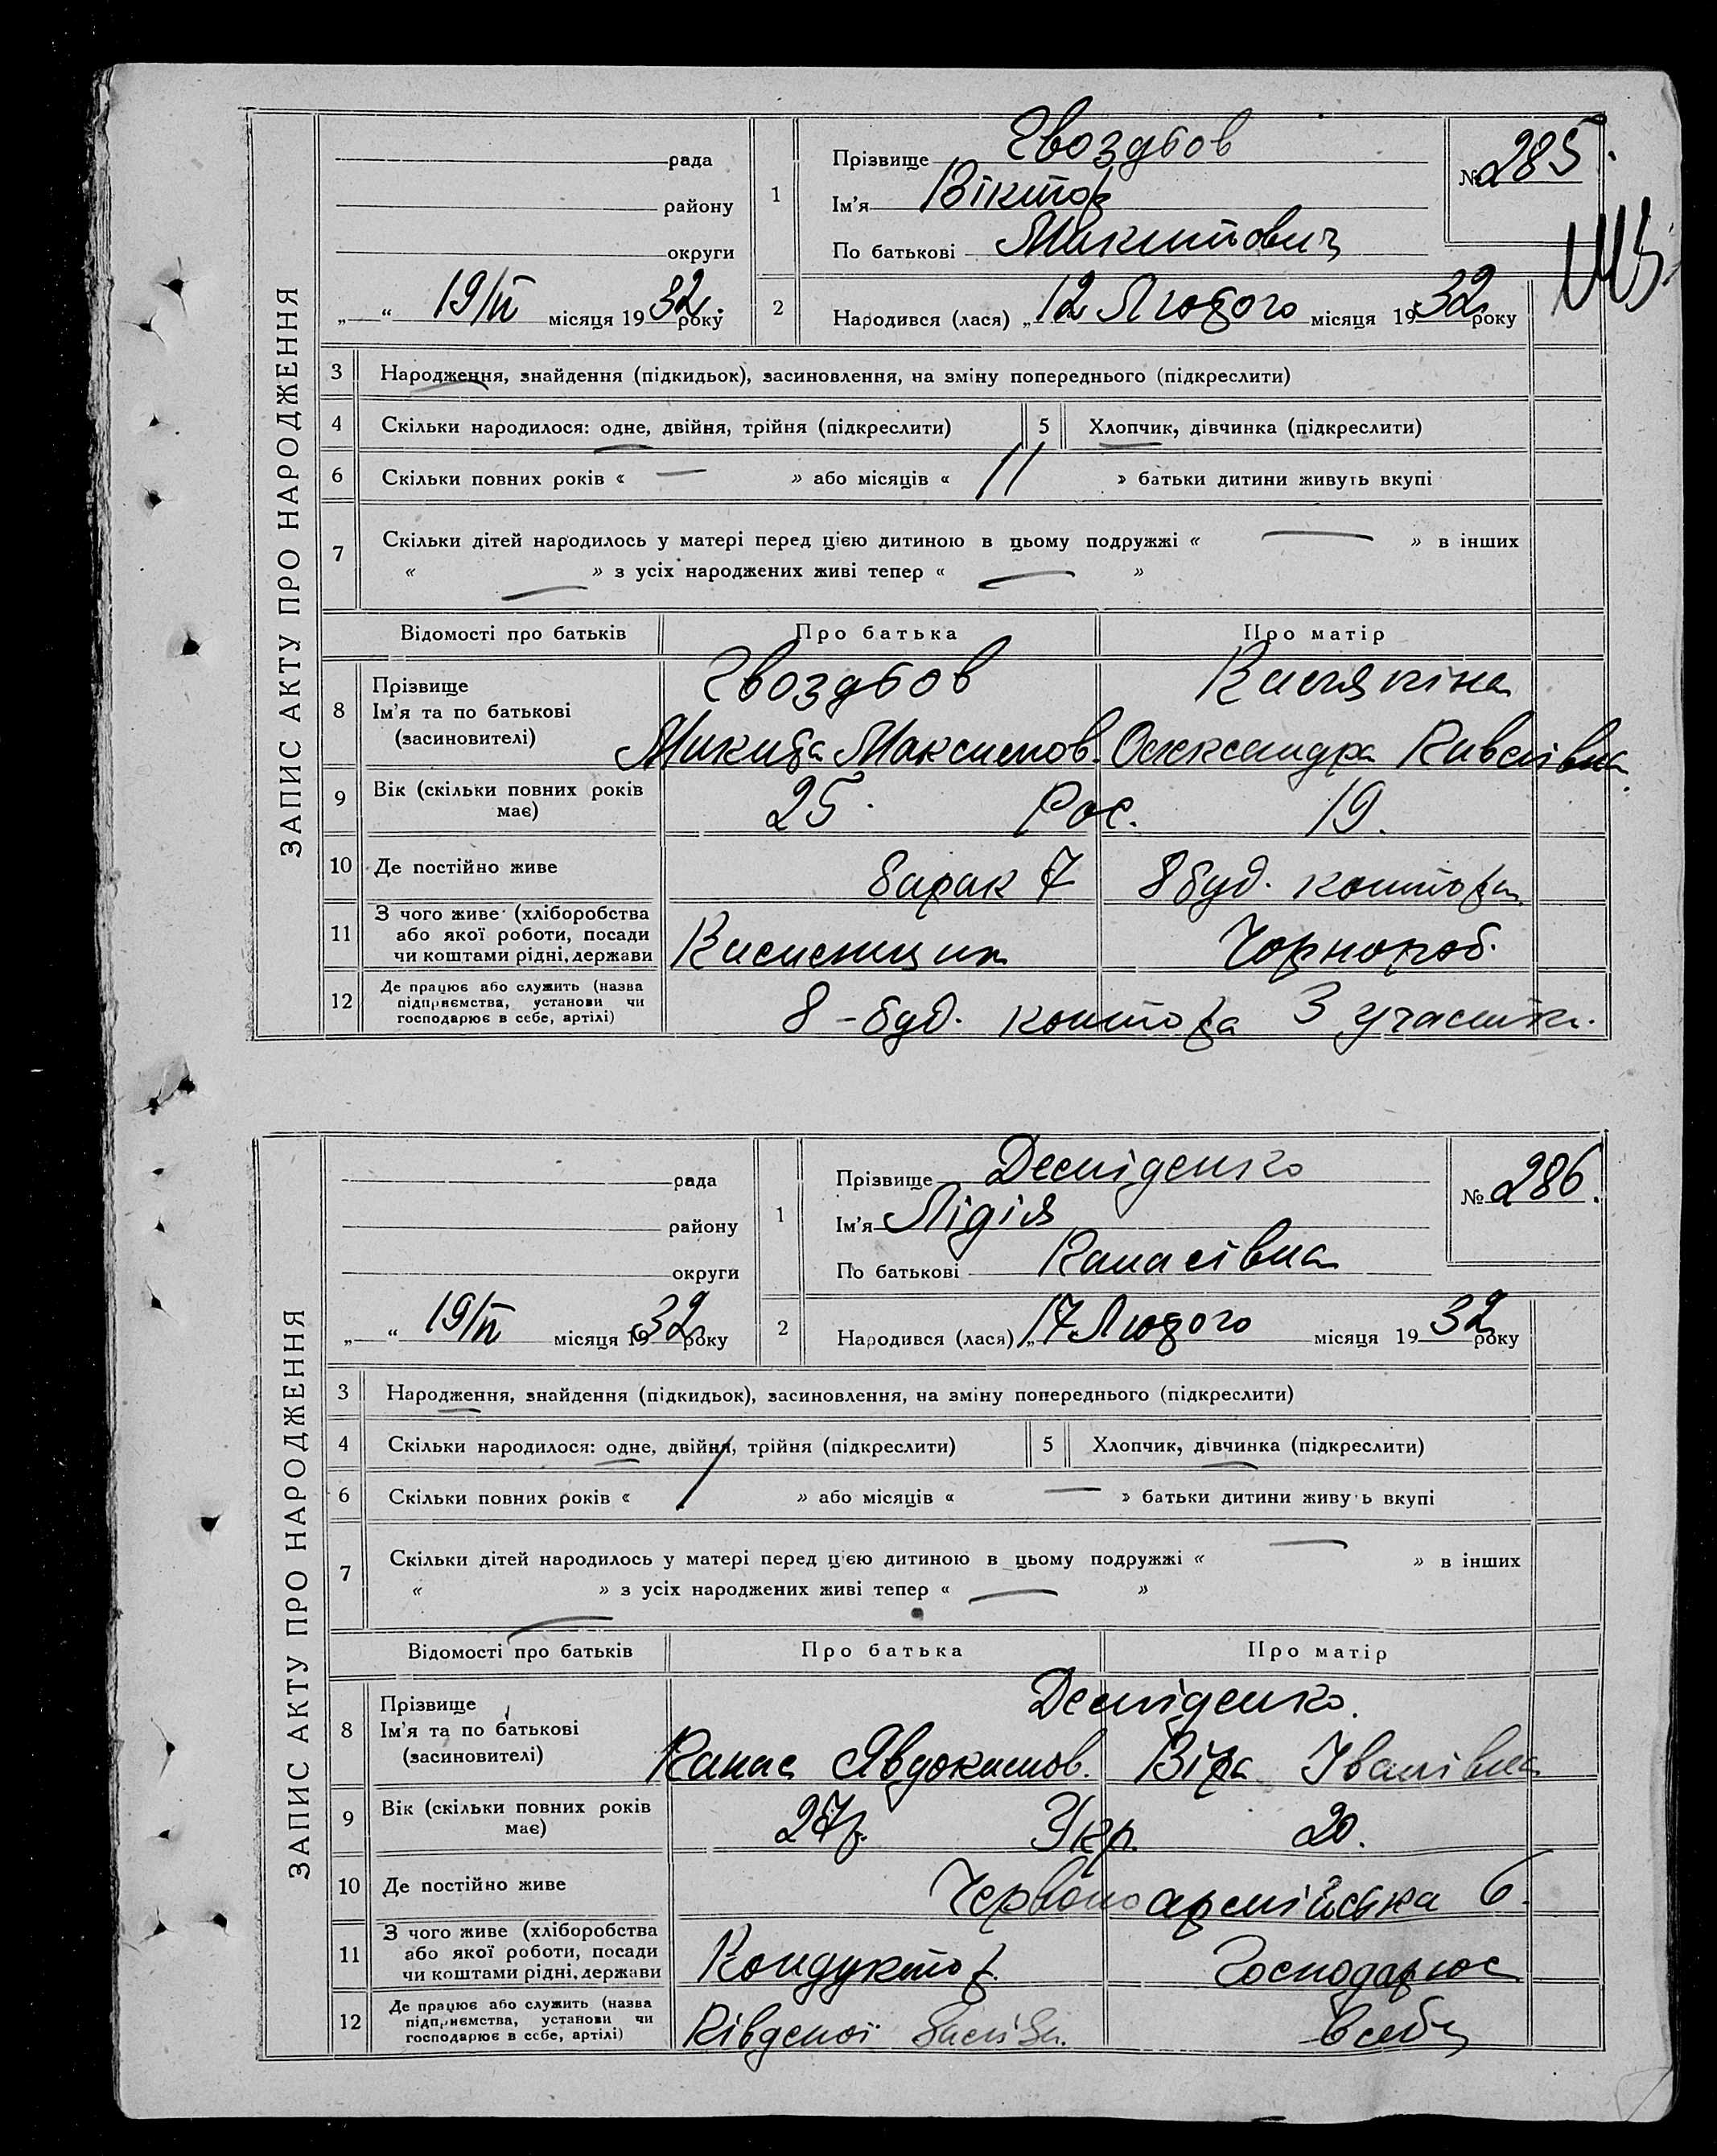 ЗАПИС АКТУ ПРО НАРОДЖЕННЯ
рада
району
округи
„ “ 19/II місяця 1932 року
1 Прізвище Гвоздьов
Ім'я Віктор
По батькові Микитович
№ 285.
2 Народився (лася) „12 Лютого місяця 1932 року
3 Народження, знайдення (підкидьок), засиновлення, на зміну попереднього (підкреслити)
4 Скільки народилося: одне, двійня, трійня (підкреслити) 5 Хлопчик, дівчинка (підкреслити)
6 Скільки повних років « — » або місяців « 11 » батьки дитини живуть вкупі
7 Скільки дітей народилось у матері перед цією дитиною в цьому подружжі « — » в інших
« — » з усіх народжених живі тепер « — »
Відомості про батьків Про батька Про матір
8 Прізвище Гвоздьов
Ім'я та по батькові
(засновителі) Микита Максимов. Олександра
9 Вік (скільки повних років має) 25. Рос. 19.
10 Де постійно живе барак 7 8 буд. контора
11 З чого живе (хліборобства або якої роботи, посади чи коштами рідні, держави Чорнороб.
12 Де працює або служить (назва підприємства, установи чи господарює в себе, артілі) 8-буд. контора 3 участок.
ЗАПИС АКТУ ПРО НАРОДЖЕННЯ
рада
району
округи
„ “ 19/II місяця 1932 року
1 Прізвище Деміденко
Ім'я Лідія
По батькові Панасівна
№ 286.
2 Народився (лася) „17 Лютого місяця 1932 року
3 Народження, знайдення (підкидьок), засиновлення, на зміну попереднього (підкреслити)
4 Скільки народилося: одне, двійня, трійня (підкреслити) 5 Хлопчик, дівчинка (підкреслити)
6 Скільки повних років « 1 » або місяців « — » батьки дитини живуть вкупі
7 Скільки дітей народилось у матері перед цією дитиною в цьому подружжі « — » в інших
« — » з усіх народжених живі тепер « — »
Відомості про батьків Про батька Про матір
8 Прізвище Деміденко.
Ім'я та по батькові
(засновителі) Панас Явдокимов. Віра Іванівна
9 Вік (скільки повних років має) 27р. Укр. 20.
10 Де постійно живе Червоноармійська 6.
11 З чого живе (хліборобства або якої роботи, посади чи коштами рідні, держави Кондуктор. Господарює
12 Де працює або служить (назва підприємства, установи чи господарює в себе, артілі) Південої в себе